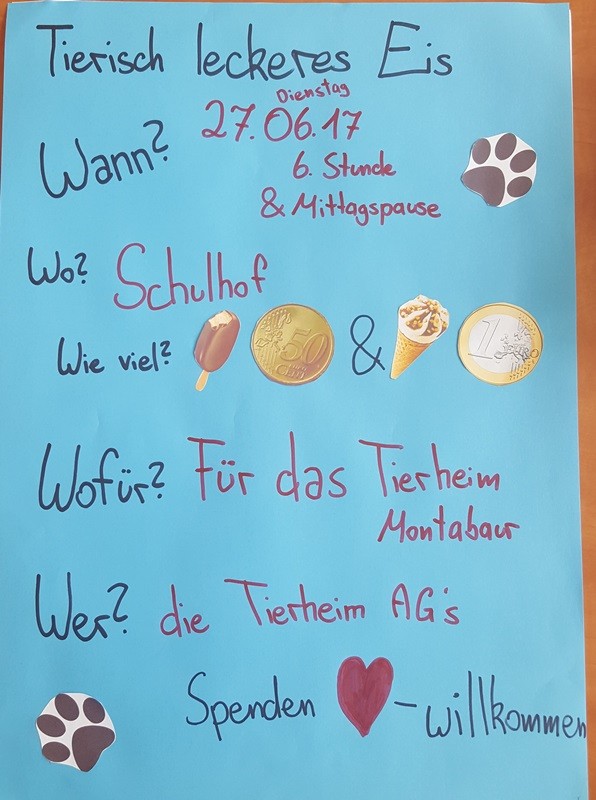 Tierisch leckeres Eis
Dienstag
Wann? 27.06.17
6. Stunde
& Mittagspause
Wo? Schulhof
Wie viel? 50 & 1
Wofür? Für das Tierheim
Montabaur
Wer? die Tierheim AG's
Spenden - willkommen